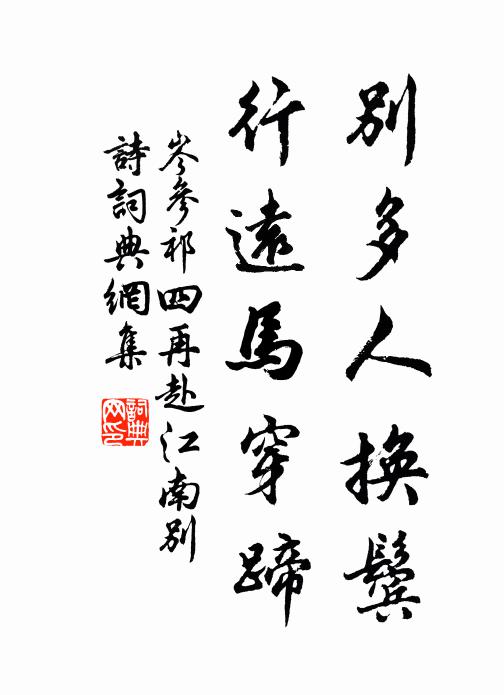 別多人換鬢
行遠馬穿蹄
岑參祁四再赴江南別
詩詞典網集
詞典
网印